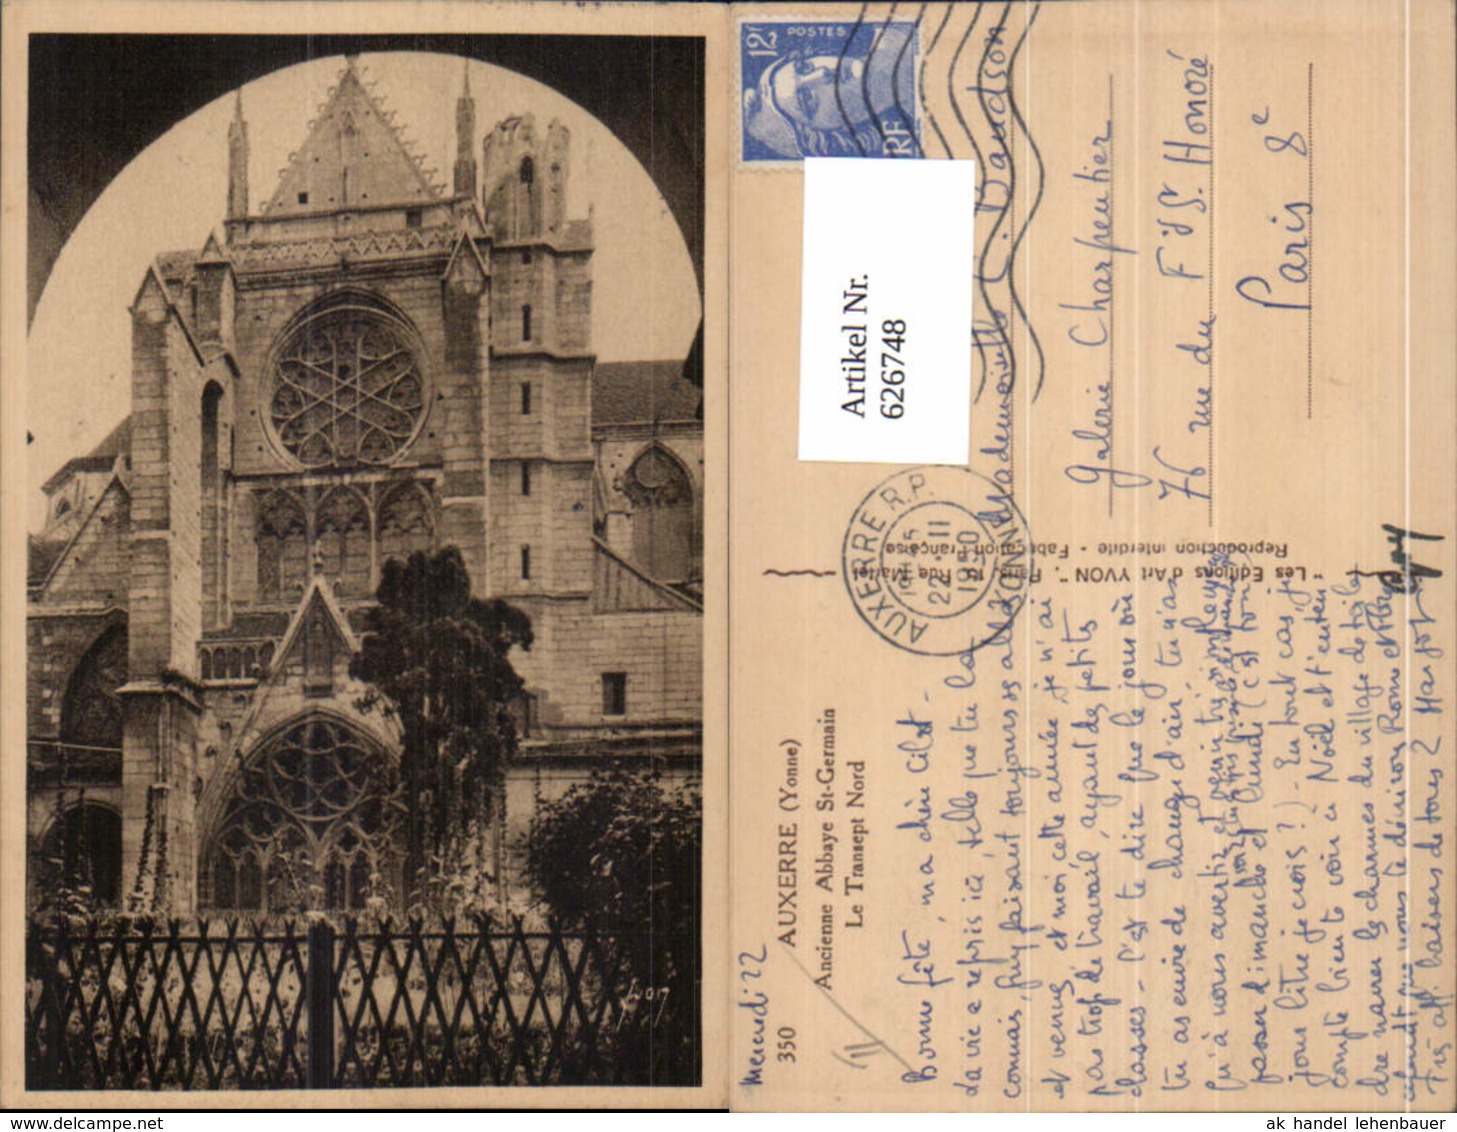 Yvon
12F
POSTES
RF
Artikel Nr.
626748
AUXERRE R.P.
YONNE
22 - 11
1950
Mademoiselle C. Baudson
Galerie Charpentier
76 rue du F g St. Honoré
Paris 8e
"Les Editions d'Art YVON". Paris,
Reproduction interdite - Fabrication Française
350 AUXERRE (Yonne)
Ancienne Abbaye St-Germain
Le Transept Nord
Mercredi 22
Bonne fête, ma chère Cilot -
La vie a repris ici, telle que tu la
connais, Guy faisant toujours ses all
et venues, et moi cette année, je n'ai
pas trop de travail, ayant des petits
classes - C'est te dire que le jour où
tu as envie de changer d'air, tu n'as
qu'à nous avertir et venir
passer dimanche et lundi (c'est ton
jour libre je crois?) - En tout cas, je
compte bien te voir à Noël et t'enten
dre narrer les charmes du village de toile
Très aff. baisers de tous 2 Margot
Guy
ak handel lehenbauer